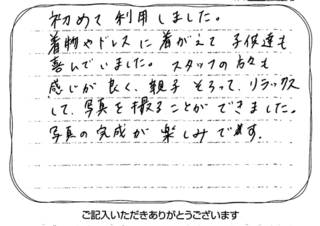 初めて利用しました。
着物やドレスに着がえて子供達も
喜んでいました。スタッフの方々も
感じが良く、親子そろって、リラックス
して、写真を撮ることができました。
写真の完成が楽しみです。
ご記入いただきありがとうございます